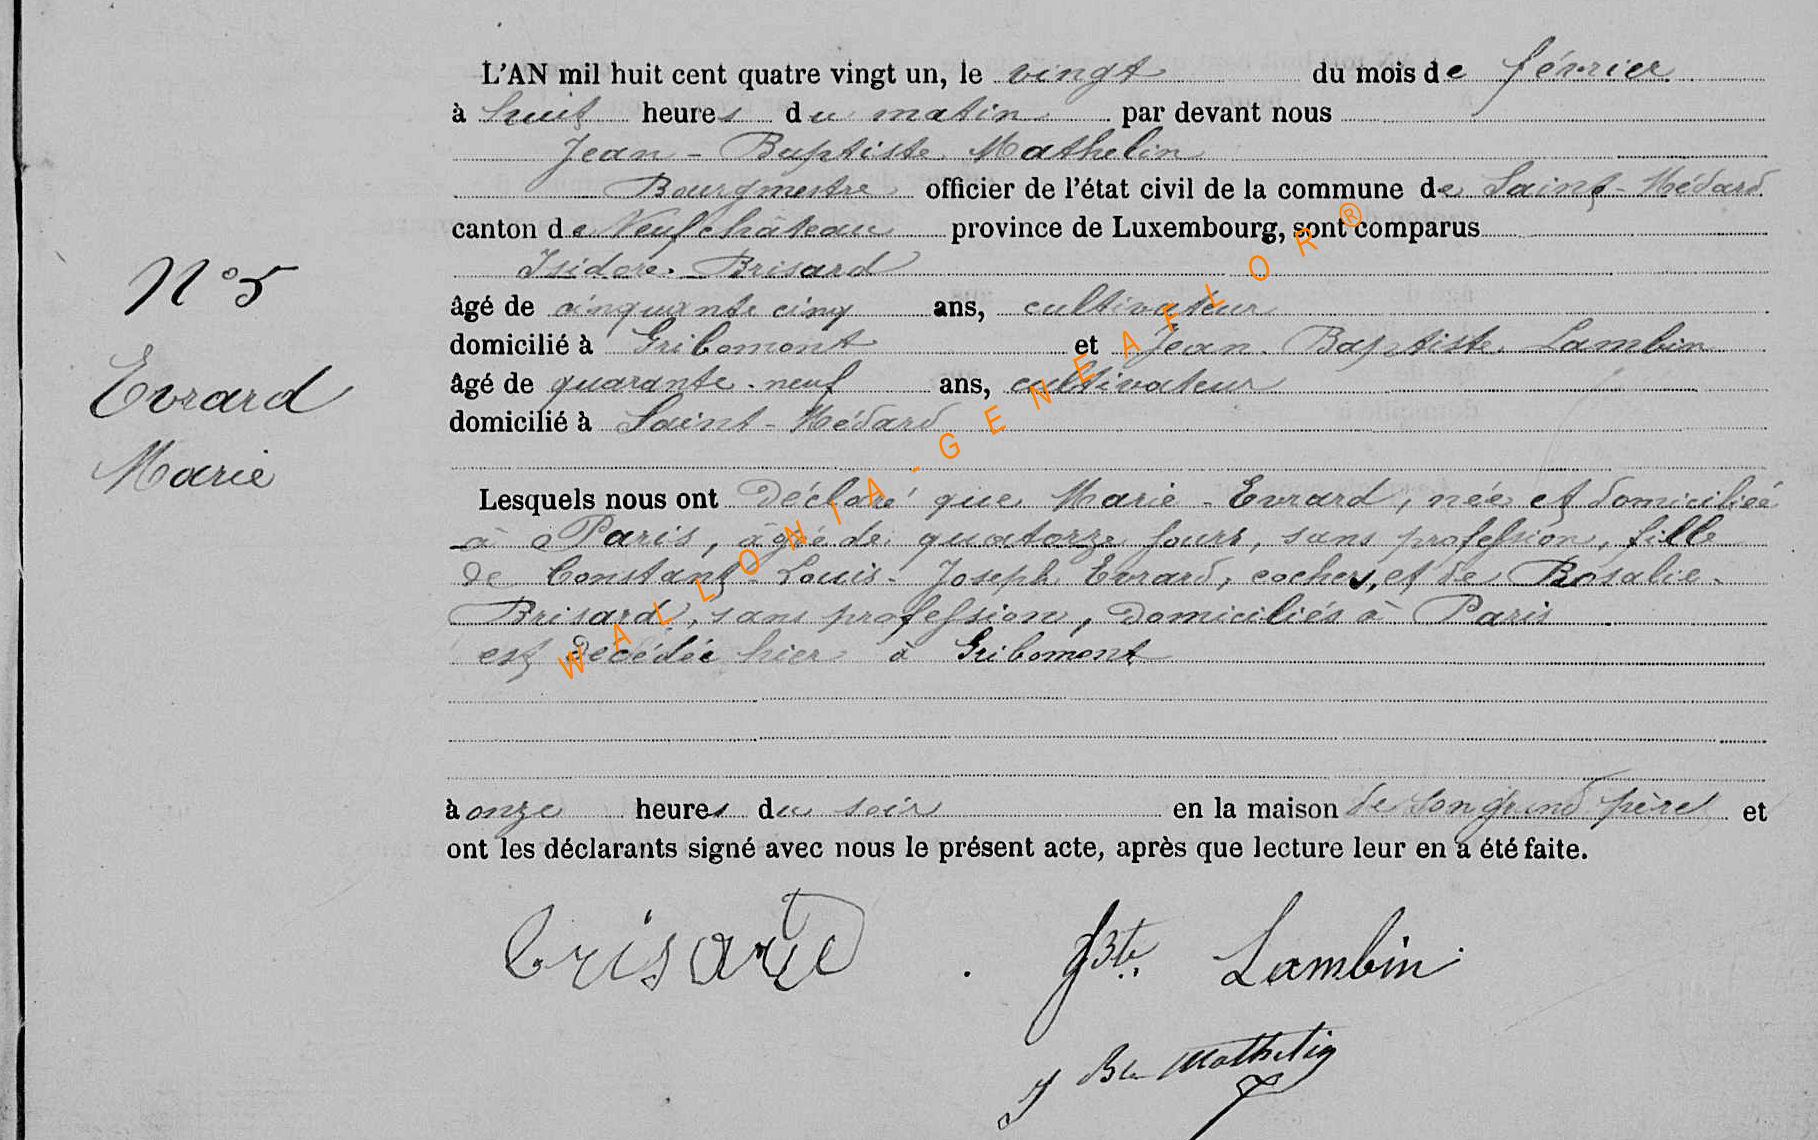 L'AN mil huit cent quatre vingt un, le vingt du mois de février
à huit heures du matin par devant nous
Jean - Baptiste Mathelin
Bourgmestre officier de l'état civil de la commune de Saint-Médard
canton de Neufchâteau province de Luxembourg, sont comparus
Isidore Brisard
âgé de cinquante cinq ans, cultivateur
domicilié à Gribomont et Jean Baptiste Lambin
âgé de quarante-neuf ans, cultivateur
domicilié à Saint-Médard
N° 5
Evrard
Marie
Lesquels nous ont déclaré que Marie - Evrard, née et domiciliée
à Paris, âgée de quatorze jours, sans profession, fille
de Constant - Louis - Joseph Evrard, cocher, et de Rosalie -
Brisard, sans profession, domiciliés à Paris
est décédée hier à Gribomont
à onze heures du soir en la maison de son grand père et
ont les déclarants signé avec nous le présent acte, après que lecture leur en a été faite.
Brisard JBte Lambin
J Bte Mathelin
WALLONIA-GENEAFLOR®